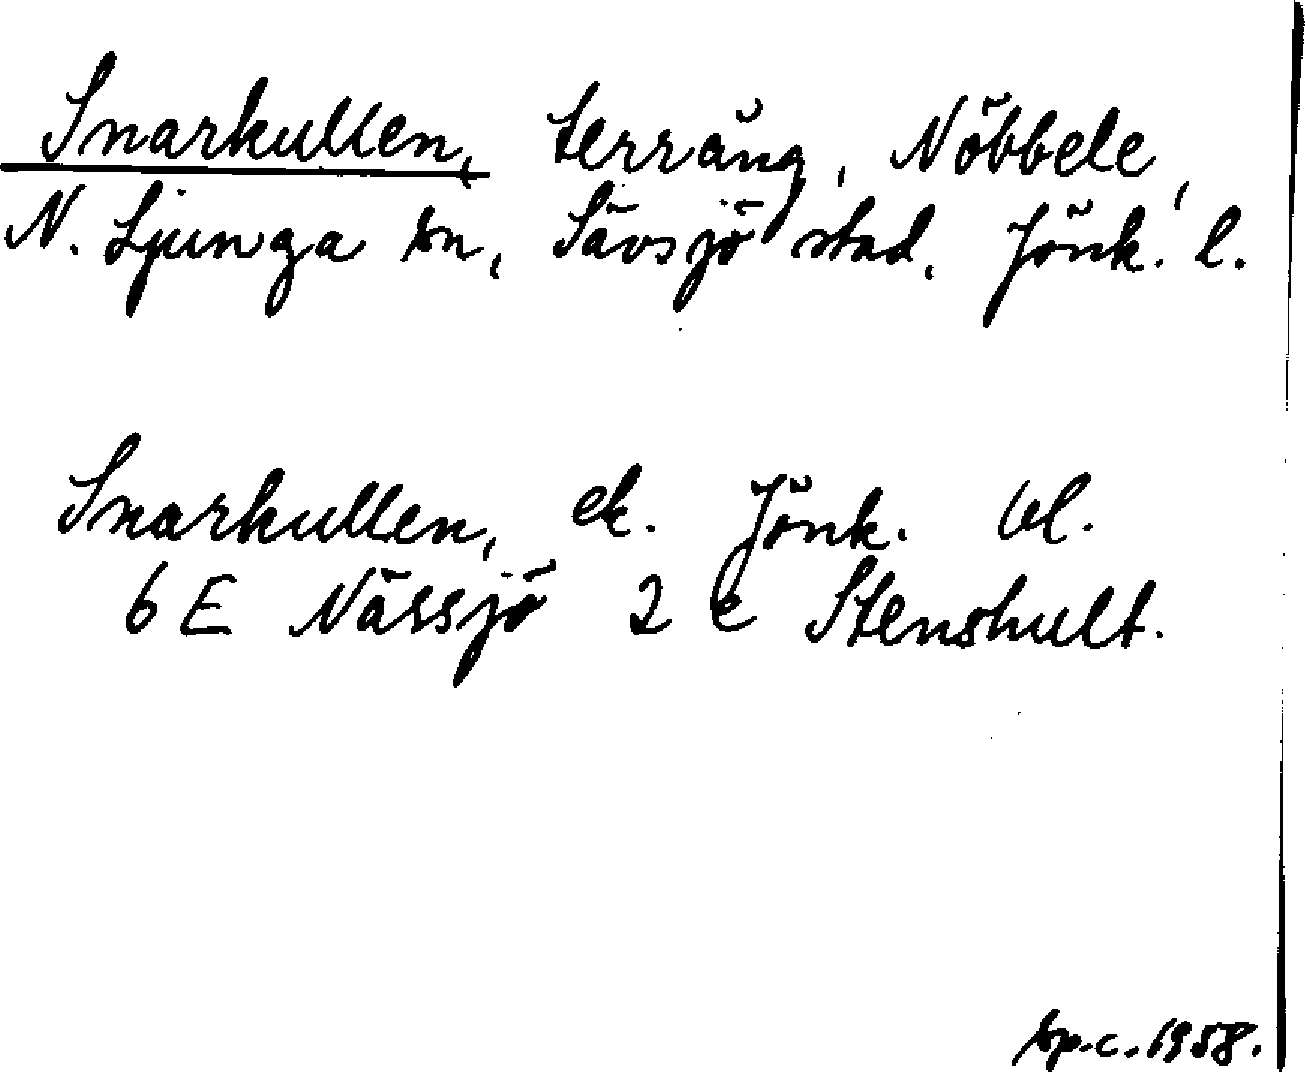 Snarkullen, terräng, Nöbbele,
N. Ljunga sn, Sävsjö stad, Jönk. l.
Snarkullen, ek. Jönk. bl.
6 E Nässjö 2 c Stenshult.
1958.